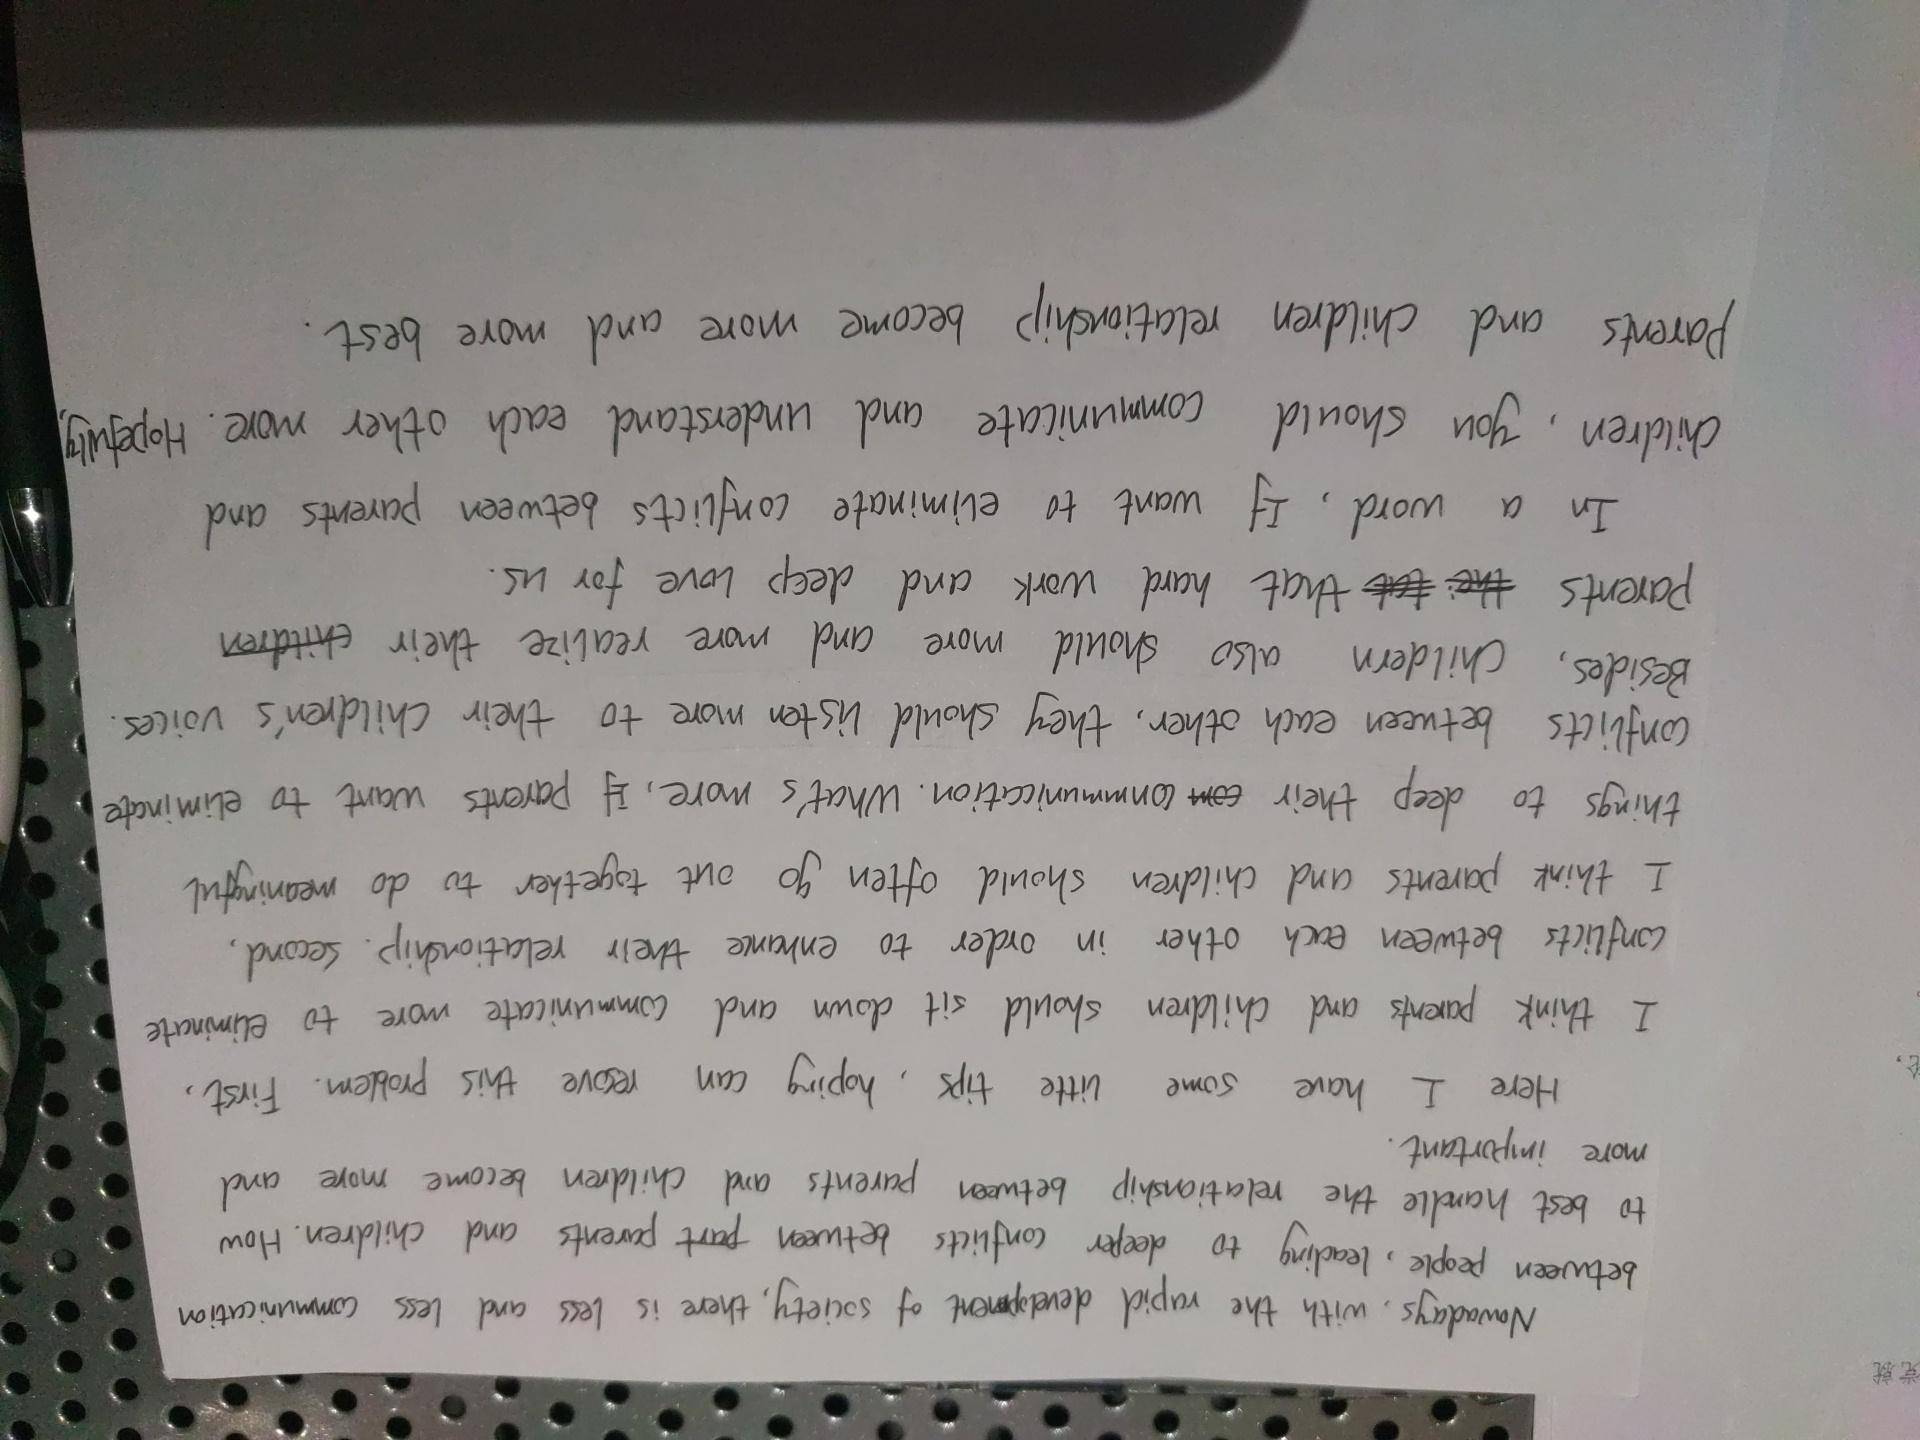 Nowadays, with the rapid development of society, there is less and less communication
between people, leading to deeper conflicts between part parents and children. How
to best handle the relationship between parents and children become more and
more important.
Here I have some little tips, hoping can resove this problem. First,
I think parents and children should sit down and communicate more to eliminate
conflicts between each other in order to enhance their relationship. Second,
I think parents and children should often go out together to do meaningful
things to deep their com communication. What's more, if parents want to eliminate
conflicts between each other, they should listen more to their children's voices.
Besides, Childern also should more and more realize their children
parents the that hard work and deep love for us.
In a word, If want to eliminate conflicts between parents and
children, you should communicate and understand each other more. Hopefully,
parents and children relationship become more and more best.